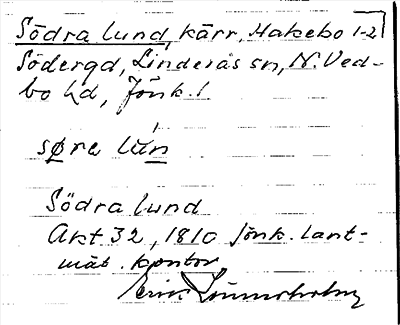 Södra lund, kärr, Hakebo 1-2
Södergd, Linderås sn, N. Ved-
bo hd, Jönk. l
søra lún
Södra lund
Akt 32, 1810 Jönk. lant-
mät. kontor
Erik